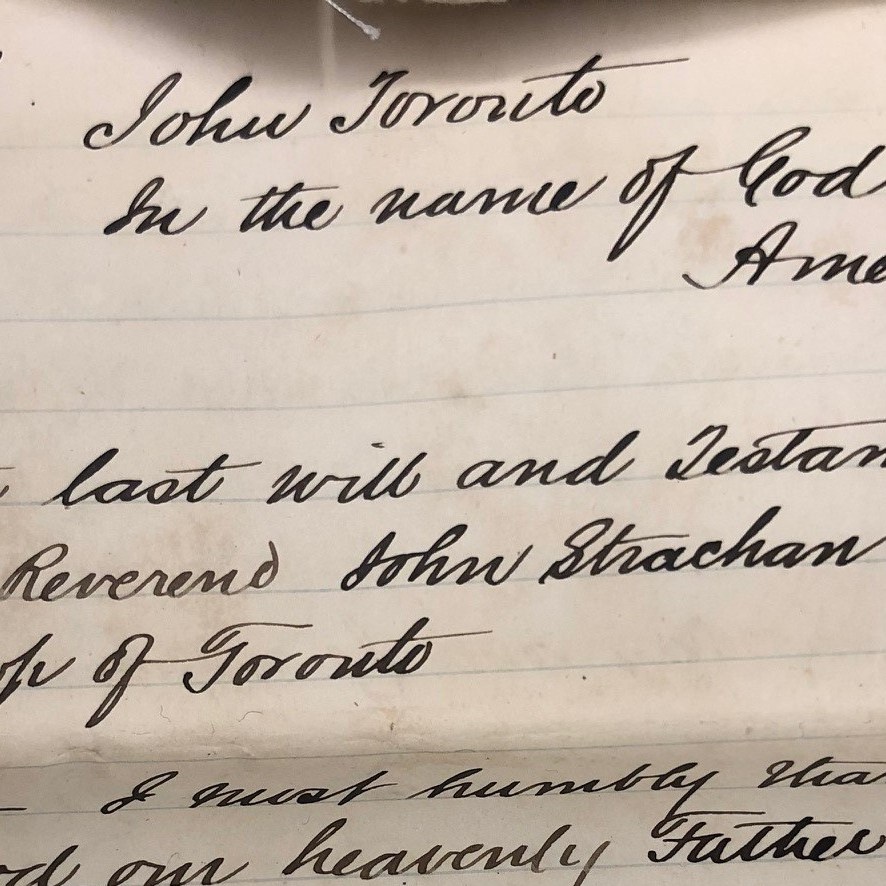 John Toronto
In the name of God
Ame
last will and Testam
Reverend John Strachan
op of Toronto
I most humbly tha
od our heavenly Father